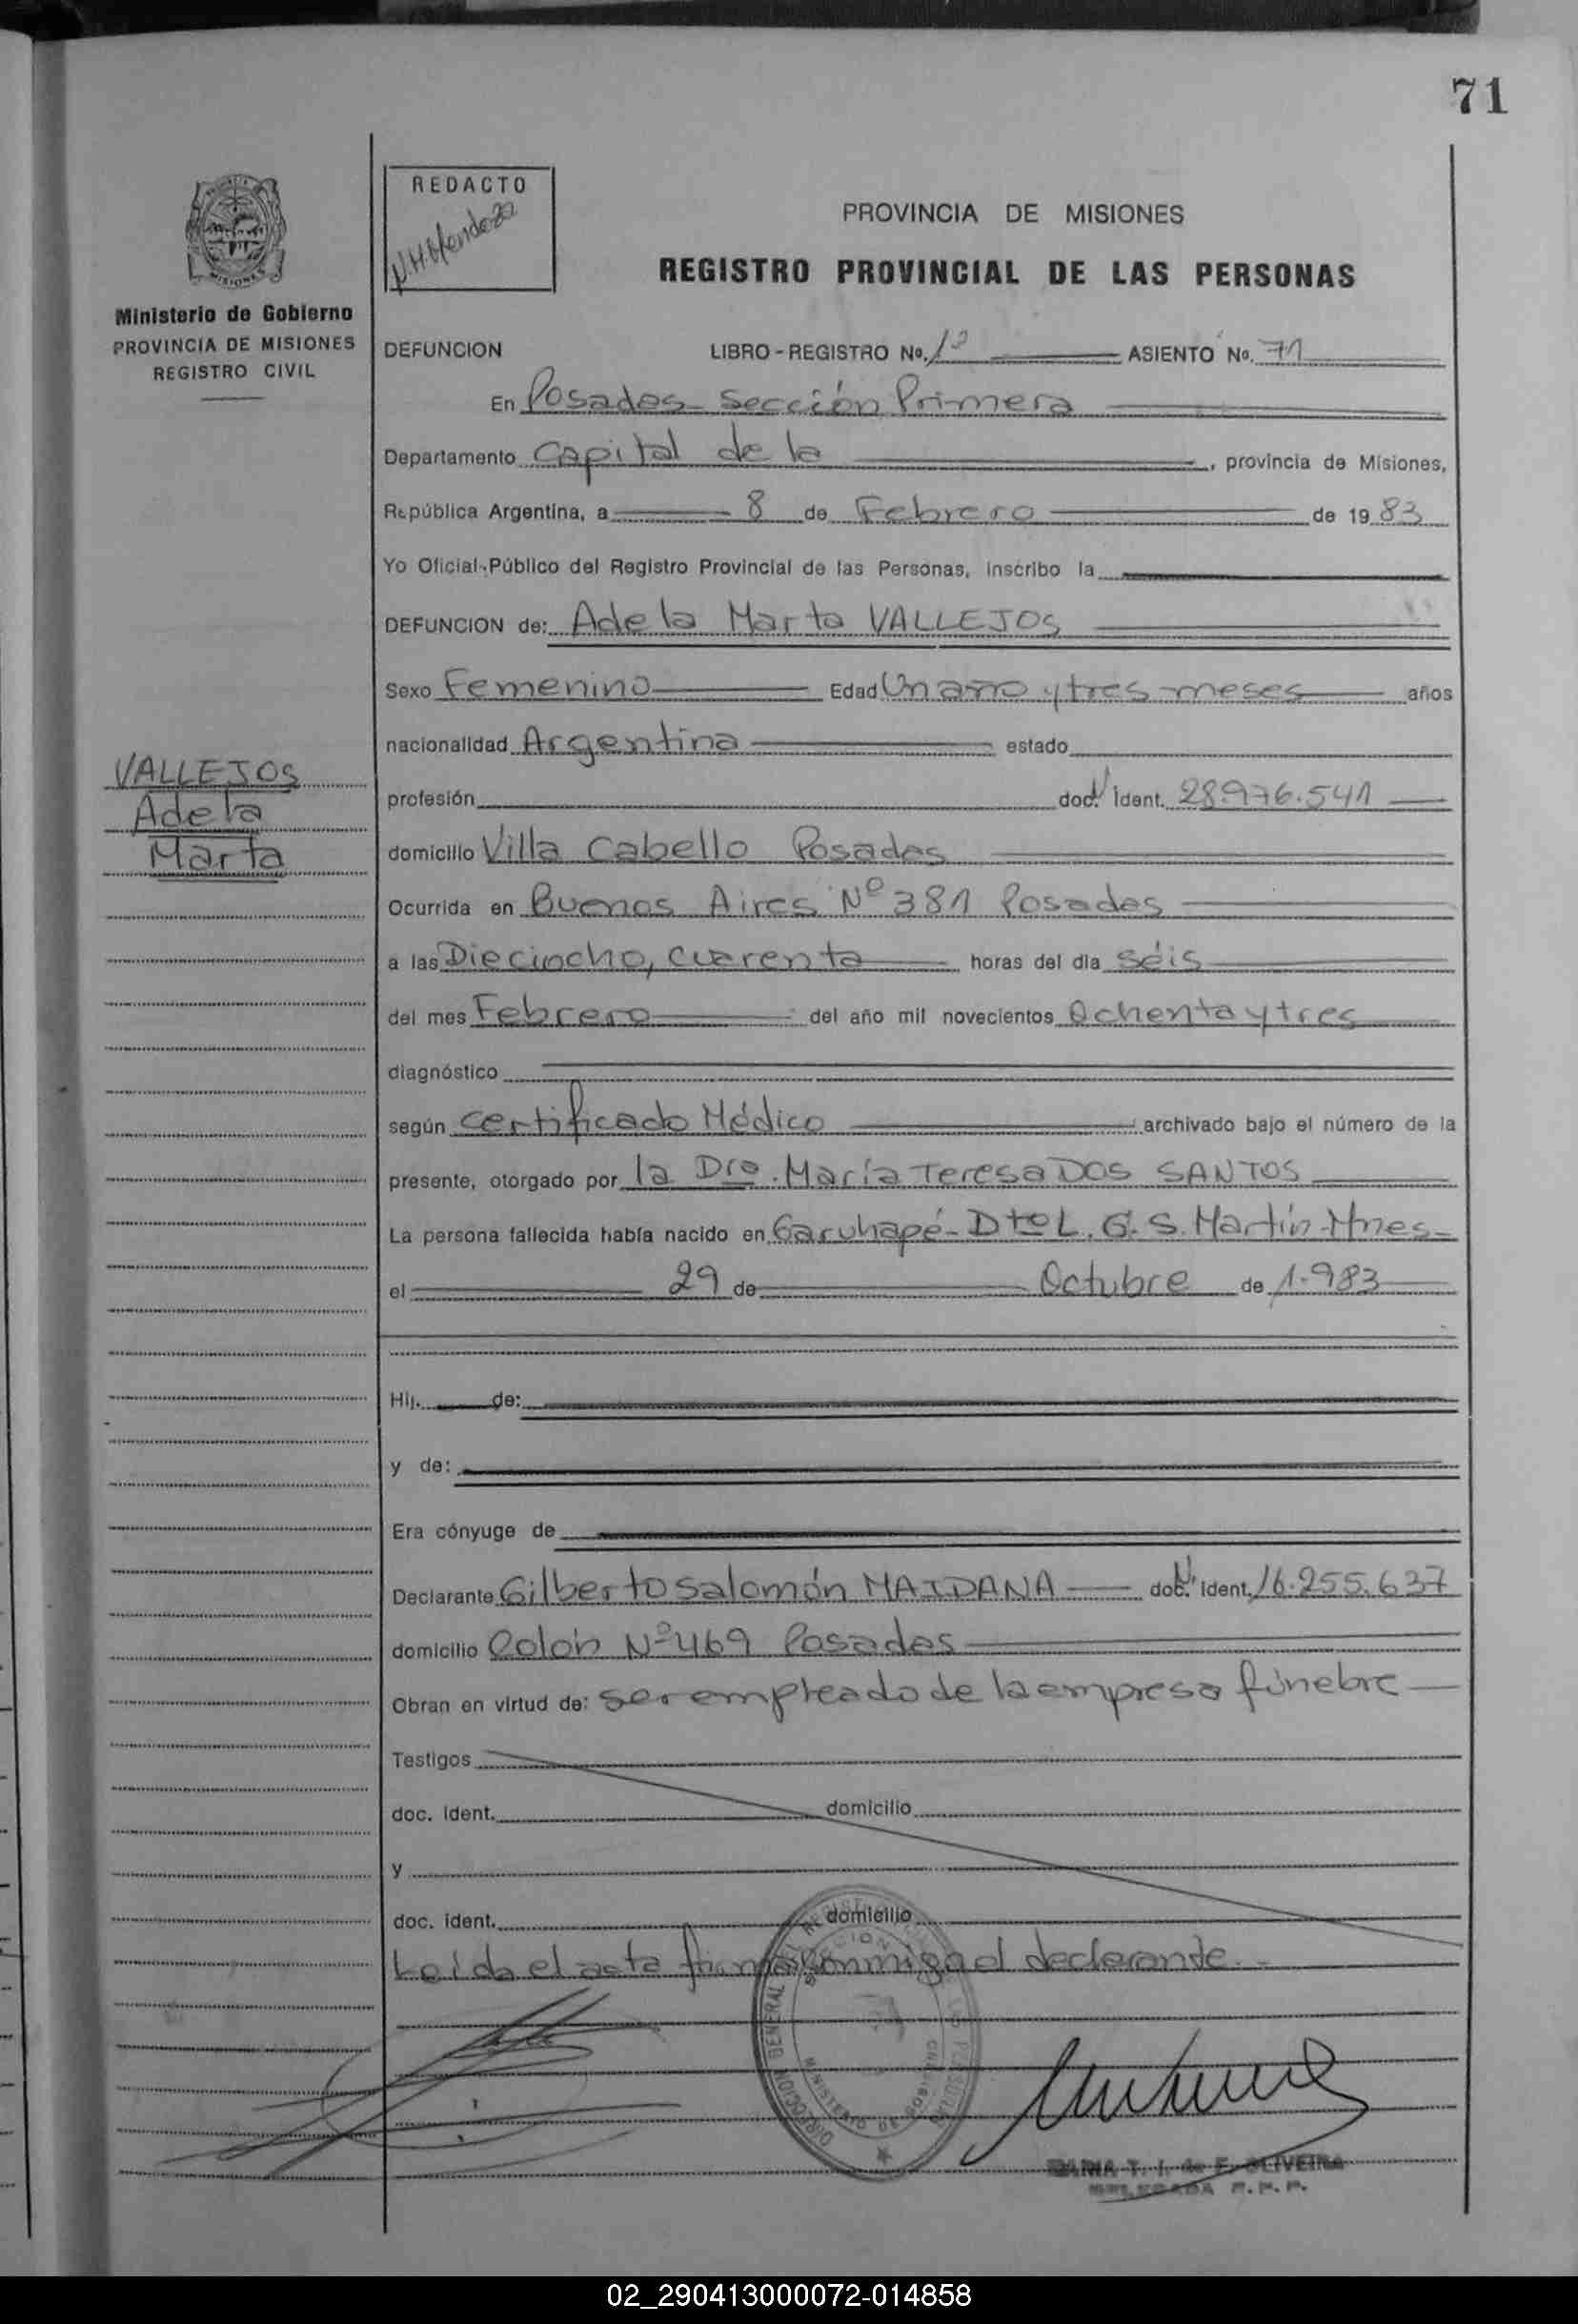 71
REDACTO
N.H. Mendoza
PROVINCIA DE MISIONES
REGISTRO PROVINCIAL DE LAS PERSONAS
Ministerio de Gobierno
PROVINCIA DE MISIONES
REGISTRO CIVIL
DEFUNCION LIBRO-REGISTRO No. 1º ASIENTO No. 71
En Posadas - Sección Primera
Departamento Capital de la , provincia de Misiones,
República Argentina, a 8 de Febrero de 19 83
Yo Oficial Público del Registro Provincial de las Personas, inscribo la
DEFUNCION de: Adela Marta VALLEJOS
Sexo Femenino Edad Un año y tres meses años
nacionalidad Argentina estado
VALLEJOS
Adela
Marta
profesión doc. Nº ident. 28.976.541
domicilio Villa Cabello Posadas
Ocurrida en Buenos Aires Nº 381 Posadas
a las Dieciocho, cuarenta horas del día séis
del mes Febrero del año mil novecientos Ochenta y tres
diagnóstico
según Certificado Médico archivado bajo el número de la
presente, otorgado por la Dra. María Teresa DOS SANTOS
La persona fallecida había nacido en Garuhapé - Dto L. G. S. Martín - Mnes -
el 29 de Octubre de 1.983
Hij. de:
y de:
Era cónyuge de
Declarante Gilberto Salomón MAIDANA doc. Nº ident. 16.255.637
domicilio Colón Nº 469 Posadas
Obran en virtud de: ser empleado de la empresa fúnebre
Testigos
doc. ident. domicilio
y
doc. ident. domicilio
Leída el acta firma conmigo el declarante.-
DIRECCION GENERAL
MARIA T. I. de F. OLIVEIRA
DELEGADA R.P.P.
02_290413000072-014858